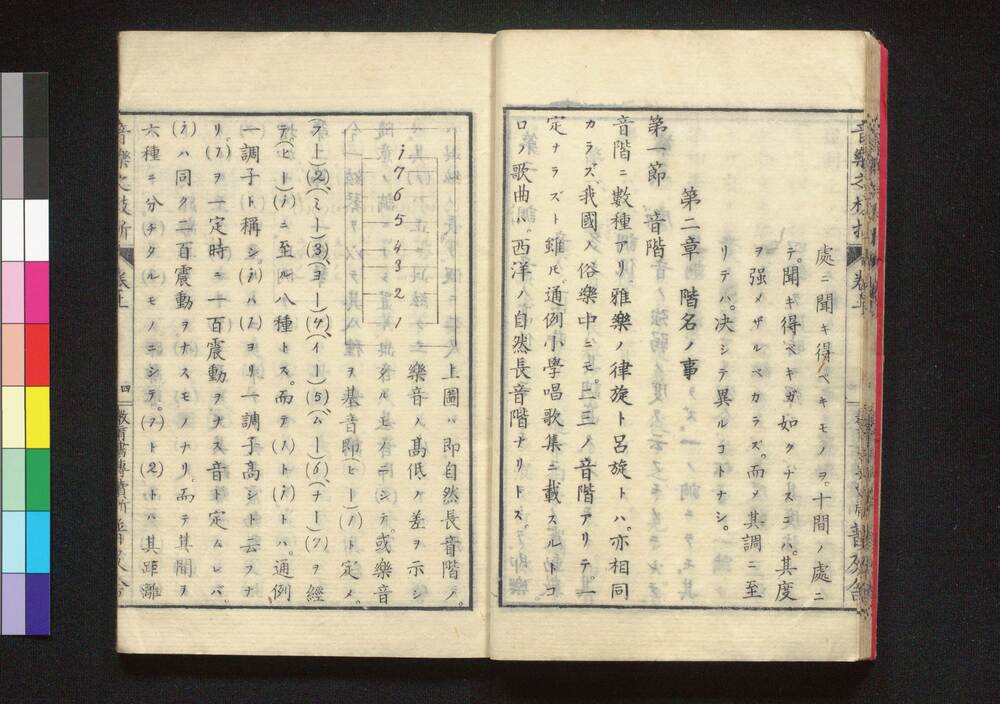 處ニ聞キ得ベキモノヲ。十間ノ處ニ
テ。聞キ得ベキガ如クナスニハ。其度
ヲ强メザルベカラズ。而〆其調ニ至
リテハ。決シテ異ルコトナシ。
第二章 階名ノ事
第一節 音階
音階ニ數種アリ雅樂ノ律旋ト呂旋トハ。亦相同
カラズ我國ノ俗樂中ニモ。二三ノ音階アリテ。一
定ナラズト雖𪜈。通例小學唱歌集ニ載スルトコ
ロノ歌曲ハ。西洋ノ自然長音階ナリトス。
i
7
6
5
4
3
2
1
上圖ハ即自然長音階ノ。
樂音ノ髙低ノ差ヲ示シ
シテ。或樂音
ヲ基音即(ヒー)(1)ト定メ。
(フー)(2)(ミー)(3)(ヨー)(4)(イー)(5)(ムー)(6)(ナー)(7)ヲ經
テ(ヒー)(i)ニ至ル八種トス。而テ(1)ト(i)トハ。通例
一調子ト稱シ。(i)ハ(1)ヨリ一調子髙シト云フナ
リ。(1)ヲ一定時ニ一百震動ヲナス音ト定ムレバ。
(i)ハ同ク二百震動ヲナスモノナリ。而テ其間ヲ
六種ニ分チタルモノニシテ。(1)ト(2)トハ其距離
音樂之枝折
卷上
四